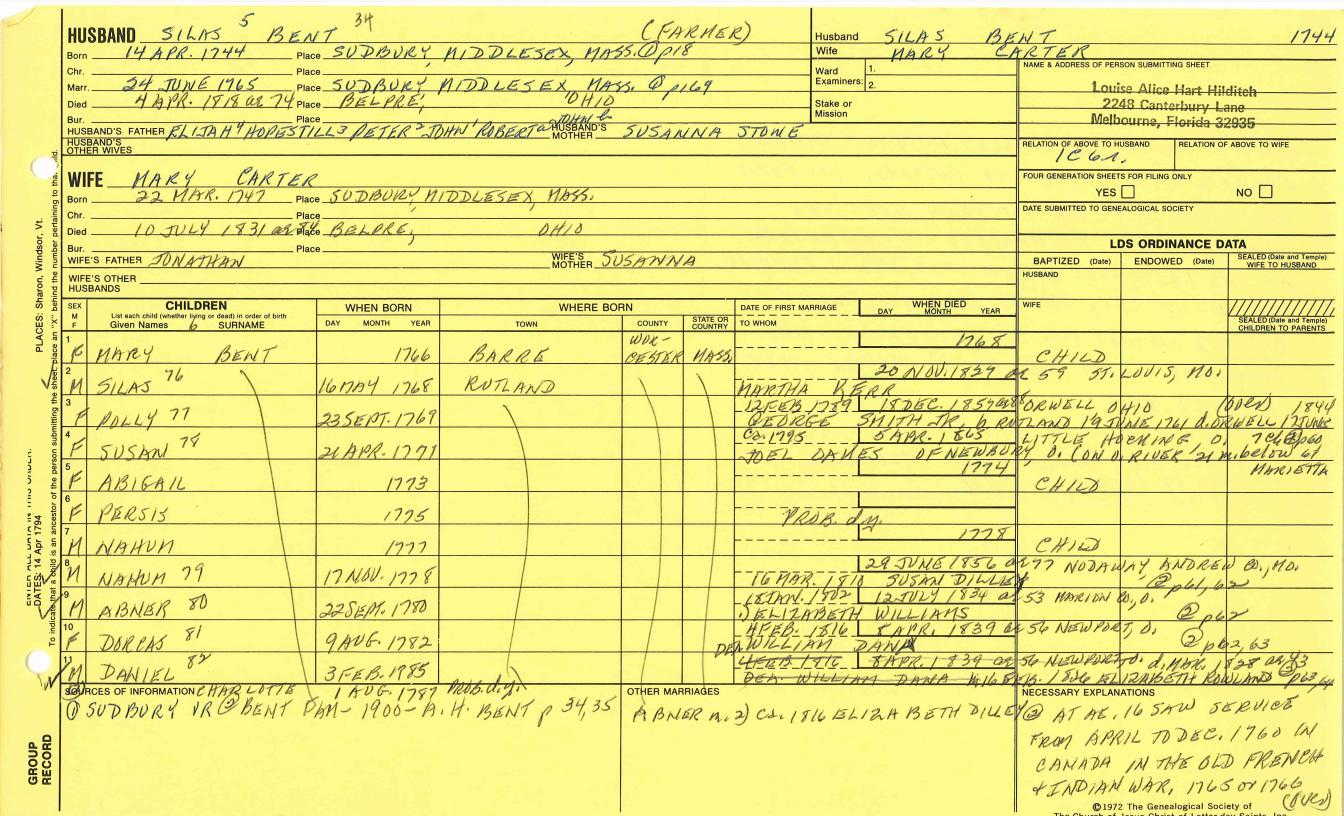 HUSBAND SILAS 5 BENT 34 (FARMER)
Born 14 APR. 1744 Place SUDBURY, MIDDLESEX, MASS. ① p18
Chr. Place
Marr. 24 JUNE 1765 Place SUDBURY MIDDLESEX MASS. ① p169
Died 4 APR. 1818 ae 74 Place BELPRE, OHIO
Bur. Place
HUSBAND'S FATHER ELIJAH4 HOPESTILL3 PETER2 JOHN1 ROBERTa JOHN b HUSBAND'S MOTHER SUSANNA STONE
HUSBAND'S OTHER WIVES
Husband SILAS BENT 1744
Wife MARY CARTER
Ward Examiners: 1. 2.
Stake or Mission
NAME & ADDRESS OF PERSON SUBMITTING SHEET
Louise Alice Hart Hilditch
2248 Canterbury Lane
Melbourne, Florida 32935
RELATION OF ABOVE TO HUSBAND RELATION OF ABOVE TO WIFE
1C 6r.
FOUR GENERATION SHEETS FOR FILING ONLY
YES NO
DATE SUBMITTED TO GENEALOGICAL SOCIETY
WIFE MARY CARTER
Born 22 MAR. 1747 Place SUDBURY, MIDDLESEX, MASS.
Chr. Place
Died 10 JULY 1831 ae 84 Place BELPRE, OHIO
Bur. Place
WIFE'S FATHER JONATHAN WIFE'S MOTHER SUSANNA
WIFE'S OTHER HUSBANDS
LDS ORDINANCE DATA
BAPTIZED (Date) ENDOWED (Date) SEALED (Date and Temple) WIFE TO HUSBAND
HUSBAND
WIFE
SEALED (Date and Temple) CHILDREN TO PARENTS
SEX M F CHILDREN WHEN BORN WHERE BORN DATE OF FIRST MARRIAGE WHEN DIED
List each child (whether living or dead) in order of birth
Given Names 6 SURNAME DAY MONTH YEAR TOWN COUNTY STATE OR COUNTRY TO WHOM DAY MONTH YEAR
1 F MARY BENT 1766 BARRE WORCESTER MASS. 1768 CHILD
2 M SILAS 76 16 MAY 1768 RUTLAND 20 NOV. 1827 ae 59 ST. LOUIS, MO.
MARTHA KERR
3 F POLLY 77 23 SEPT. 1769 12 FEB 1789 18 DEC. 1857 ae 88 ORWELL OHIO 1844
GEORGE SMITH JR. b RUTLAND 19 JUNE 1761 d. ORWELL 17 JUNE
4 F SUSAN 78 21 APR. 1771 Co. 1795 5 APR. 1865 LITTLE HOCKING O. 7 ch ② p60
JOEL OAKES OF NEWBURY, O. (ON O. RIVER 21 m. below MARIETTA 61
5 F ABIGAIL 1773 1774 CHILD
6 F PERSIS 1775 PROB. d.y.
7 M NAHUM 1777 1778 CHILD
8 M NAHUM 79 17 NOV. 1778 29 JUNE 1856 ae 77 NODAWAY, ANDREW CO., MO.
16 MAR. 1810 SUSAN DILLEY ② p61, 62
9 M ABNER 80 22 SEPT. 1780 18 JAN. 1802 12 JULY 1834 ae 53 MARION CO., O.
1) ELIZABETH WILLIAMS ② p62
10 F DORCAS 81 9 AUG. 1782 4 FEB. 1816 8 APR. 1839 ae 56 NEWPORT, O.
DEA WILLIAM DANA ② p62, 63
11 M DANIEL 82 3 FEB. 1785 4 FEB 1816 8 APR. 1839 ae 56 NEWPORT O. d. MAR. 1828 ae 43
DEA. WILLIAM DANA ELIZABETH ROWLAND ② p63, 64
CHARLOTTE 1 AUG. 1787 Prob. d.y.
SOURCES OF INFORMATION
① SUDBURY VR ② BENT FAM - 1900 - A. H. BENT p 34, 35
OTHER MARRIAGES
ABNER m. 2) Co. 1816 ELIZABETH DILLEY
NECESSARY EXPLANATIONS
② AT AE. 16 SAW SERVICE
FROM APRIL TO DEC. 1760 IN
CANADA IN THE OLD FRENCH
& INDIAN WAR, 1765 or 1766
(OVER)
©1972 The Genealogical Society of
The Church of Jesus Christ of Latter-day Saints, Inc.
GROUP RECORD
ENTER ALL DATA IN THIS ORDER:
DATES: 14 Apr 1794 PLACES: Sharon, Windsor, Vt.
To indicate that a child is an ancestor of the person submitting the sheet, place an "X" behind the number pertaining to that child.